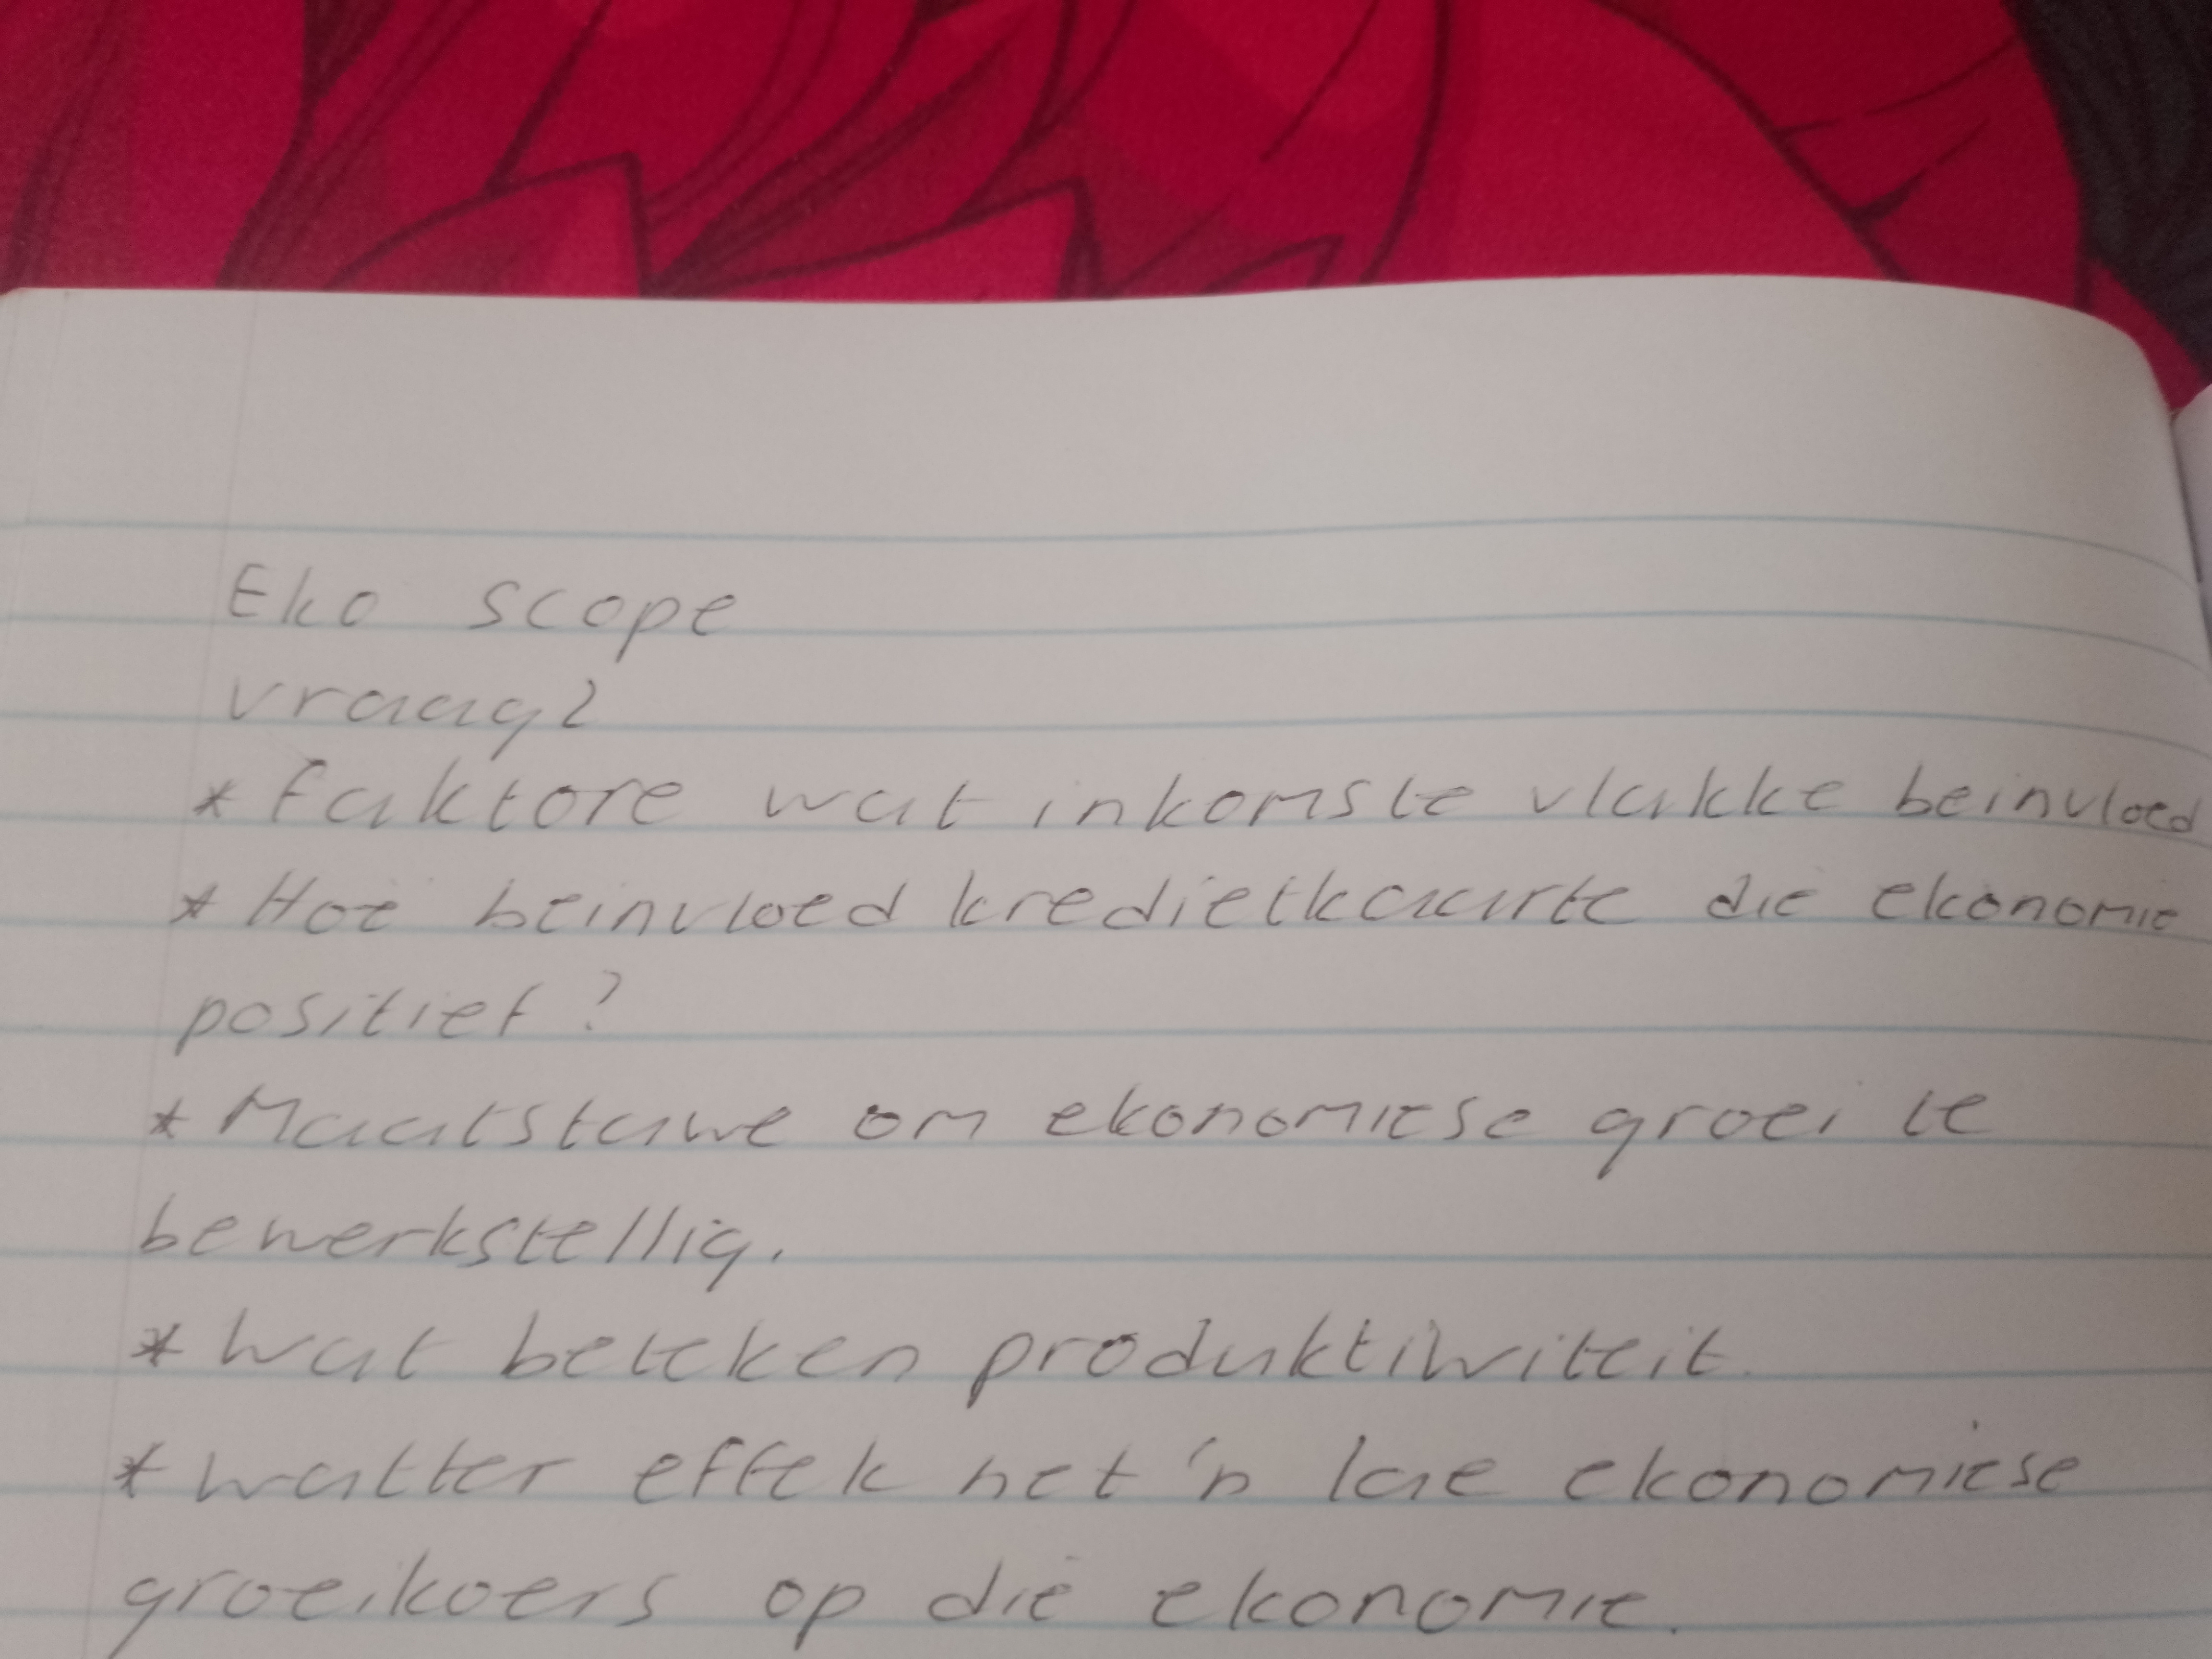 Eko scope
vraag2
* Faktore wat inkomste vlakke beinvloed
* Hoe beinvloed kredietkaarte die ekonomie
positief?
* Maatstawe om ekonomiese groei te
bewerkstellig.
* Wat beteken produktiwiteit.
* Watter effek het 'n lae ekonomiese
groeikoers op die ekonomie.